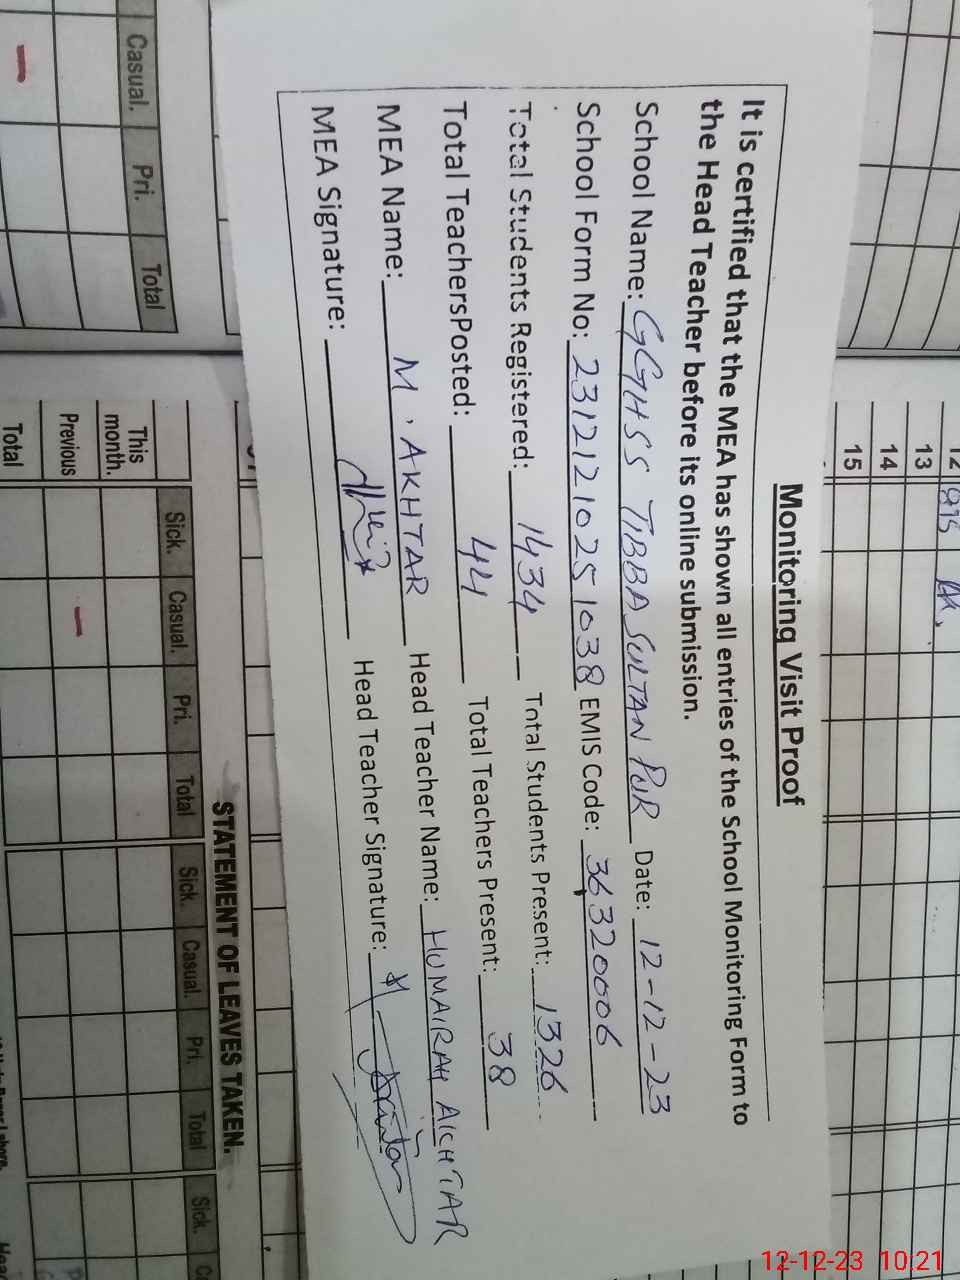 Monitoring Visit Proof
It is certified that the MEA has shown all entries of the School Monitoring Form to
the Head Teacher before its online submission.
School Name: GGHSS TIBBA SULTAN PUR Date: 12-12-23
School Form No: 23121210251038 EMIS Code: 36320006
Total Students Registered: 1434 Total Students Present: 1326
Total TeachersPosted: 44 Total Teachers Present: 38
MEA Name: M. AKHTAR Head Teacher Name: HUMAIRAH AKHTAR
MEA Signature: Head Teacher Signature:
Casual. Pri. Total
12
13
14
15
STATEMENT OF LEAVES TAKEN.
Sick. Casual. Pri. Total Sick. Casual. Pri. Total Sick.
This month.
Previous
Total
12-12-23 10:21